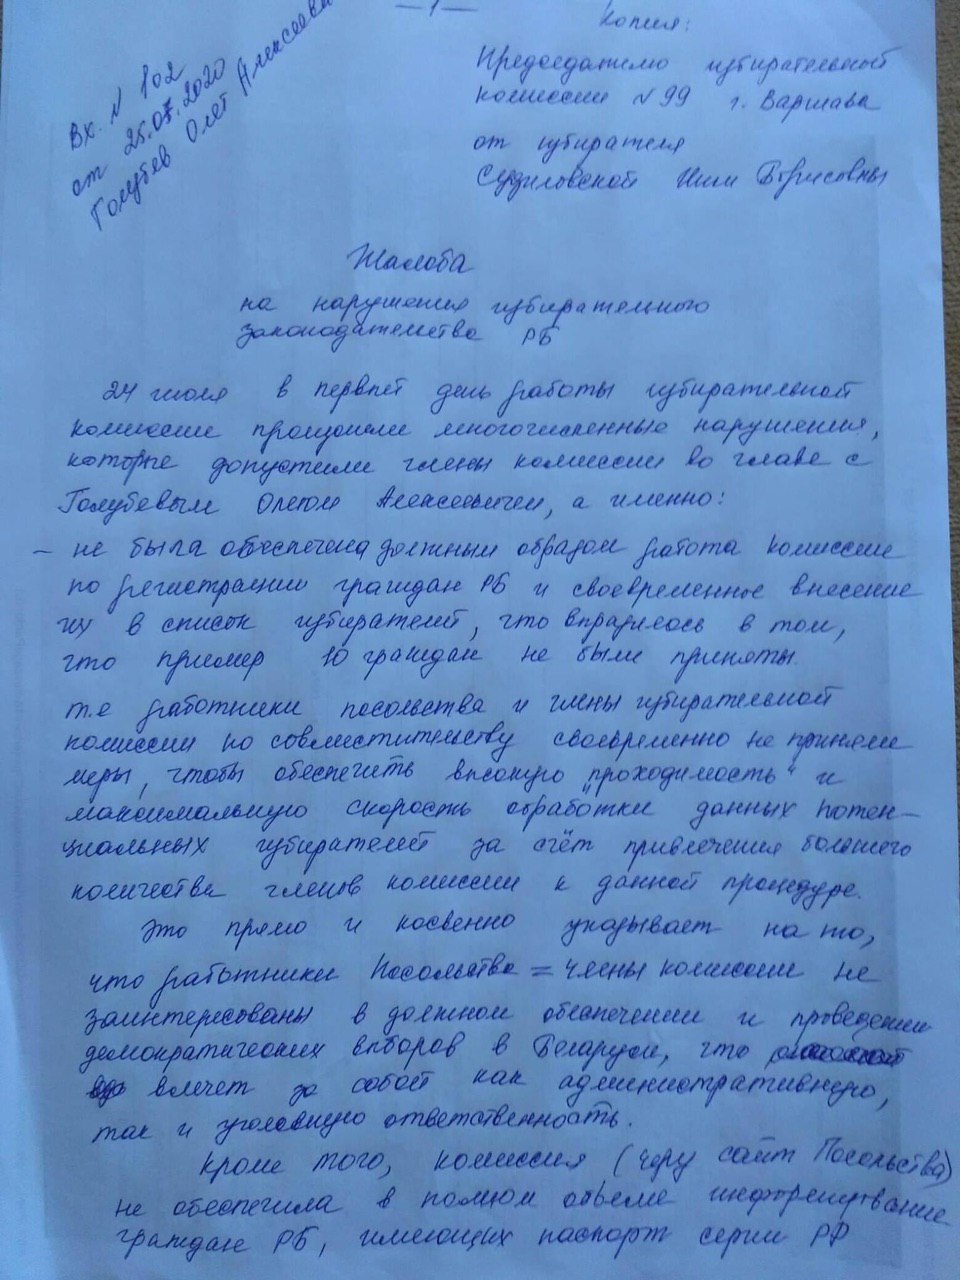 — 1 —
Копия:
Вх. N 102
от 25.07.2020
Голубев Олег Алексеевич
Председателю избирательной
комиссии N 99 г. Варшава
от избирателя
Судиловской Инги Борисовны
Жалоба
на нарушения избирательного
законодательства РБ
24 июля в первый день работы избирательной
комиссии произошли многочисленные нарушения,
которые допустили члены комиссии во главе с
Голубевым Олегом Алексеевичем, а именно:
— не была обеспечена должным образом работа комиссии
по регистрации граждан РБ и своевременное внесение
их в список избирателей, что выразилось в том,
что пример 10 граждан не были приняты.
т.е работники посольства и члены избирательной
комиссии по совместительству своевременно не приняли
меры, чтобы обеспечить высокую „проходимость" и
максимальную скорость обработки данных потен-
циальных избирателей за счёт привлечения большего
количества членов комиссии к данной процедуре.
Это прямо и косвенно указывает на то,
что работники Посольства = члены комиссии не
заинтересованы в должном обеспечении и проведении
демократических выборов в Беларуси, что
влечет за собой как административную,
так и уголовную ответственность.
Кроме того, комиссия (через сайт Посольства)
не обеспечила в полном объеме информирование
граждан РБ, имеющих паспорт серии РР